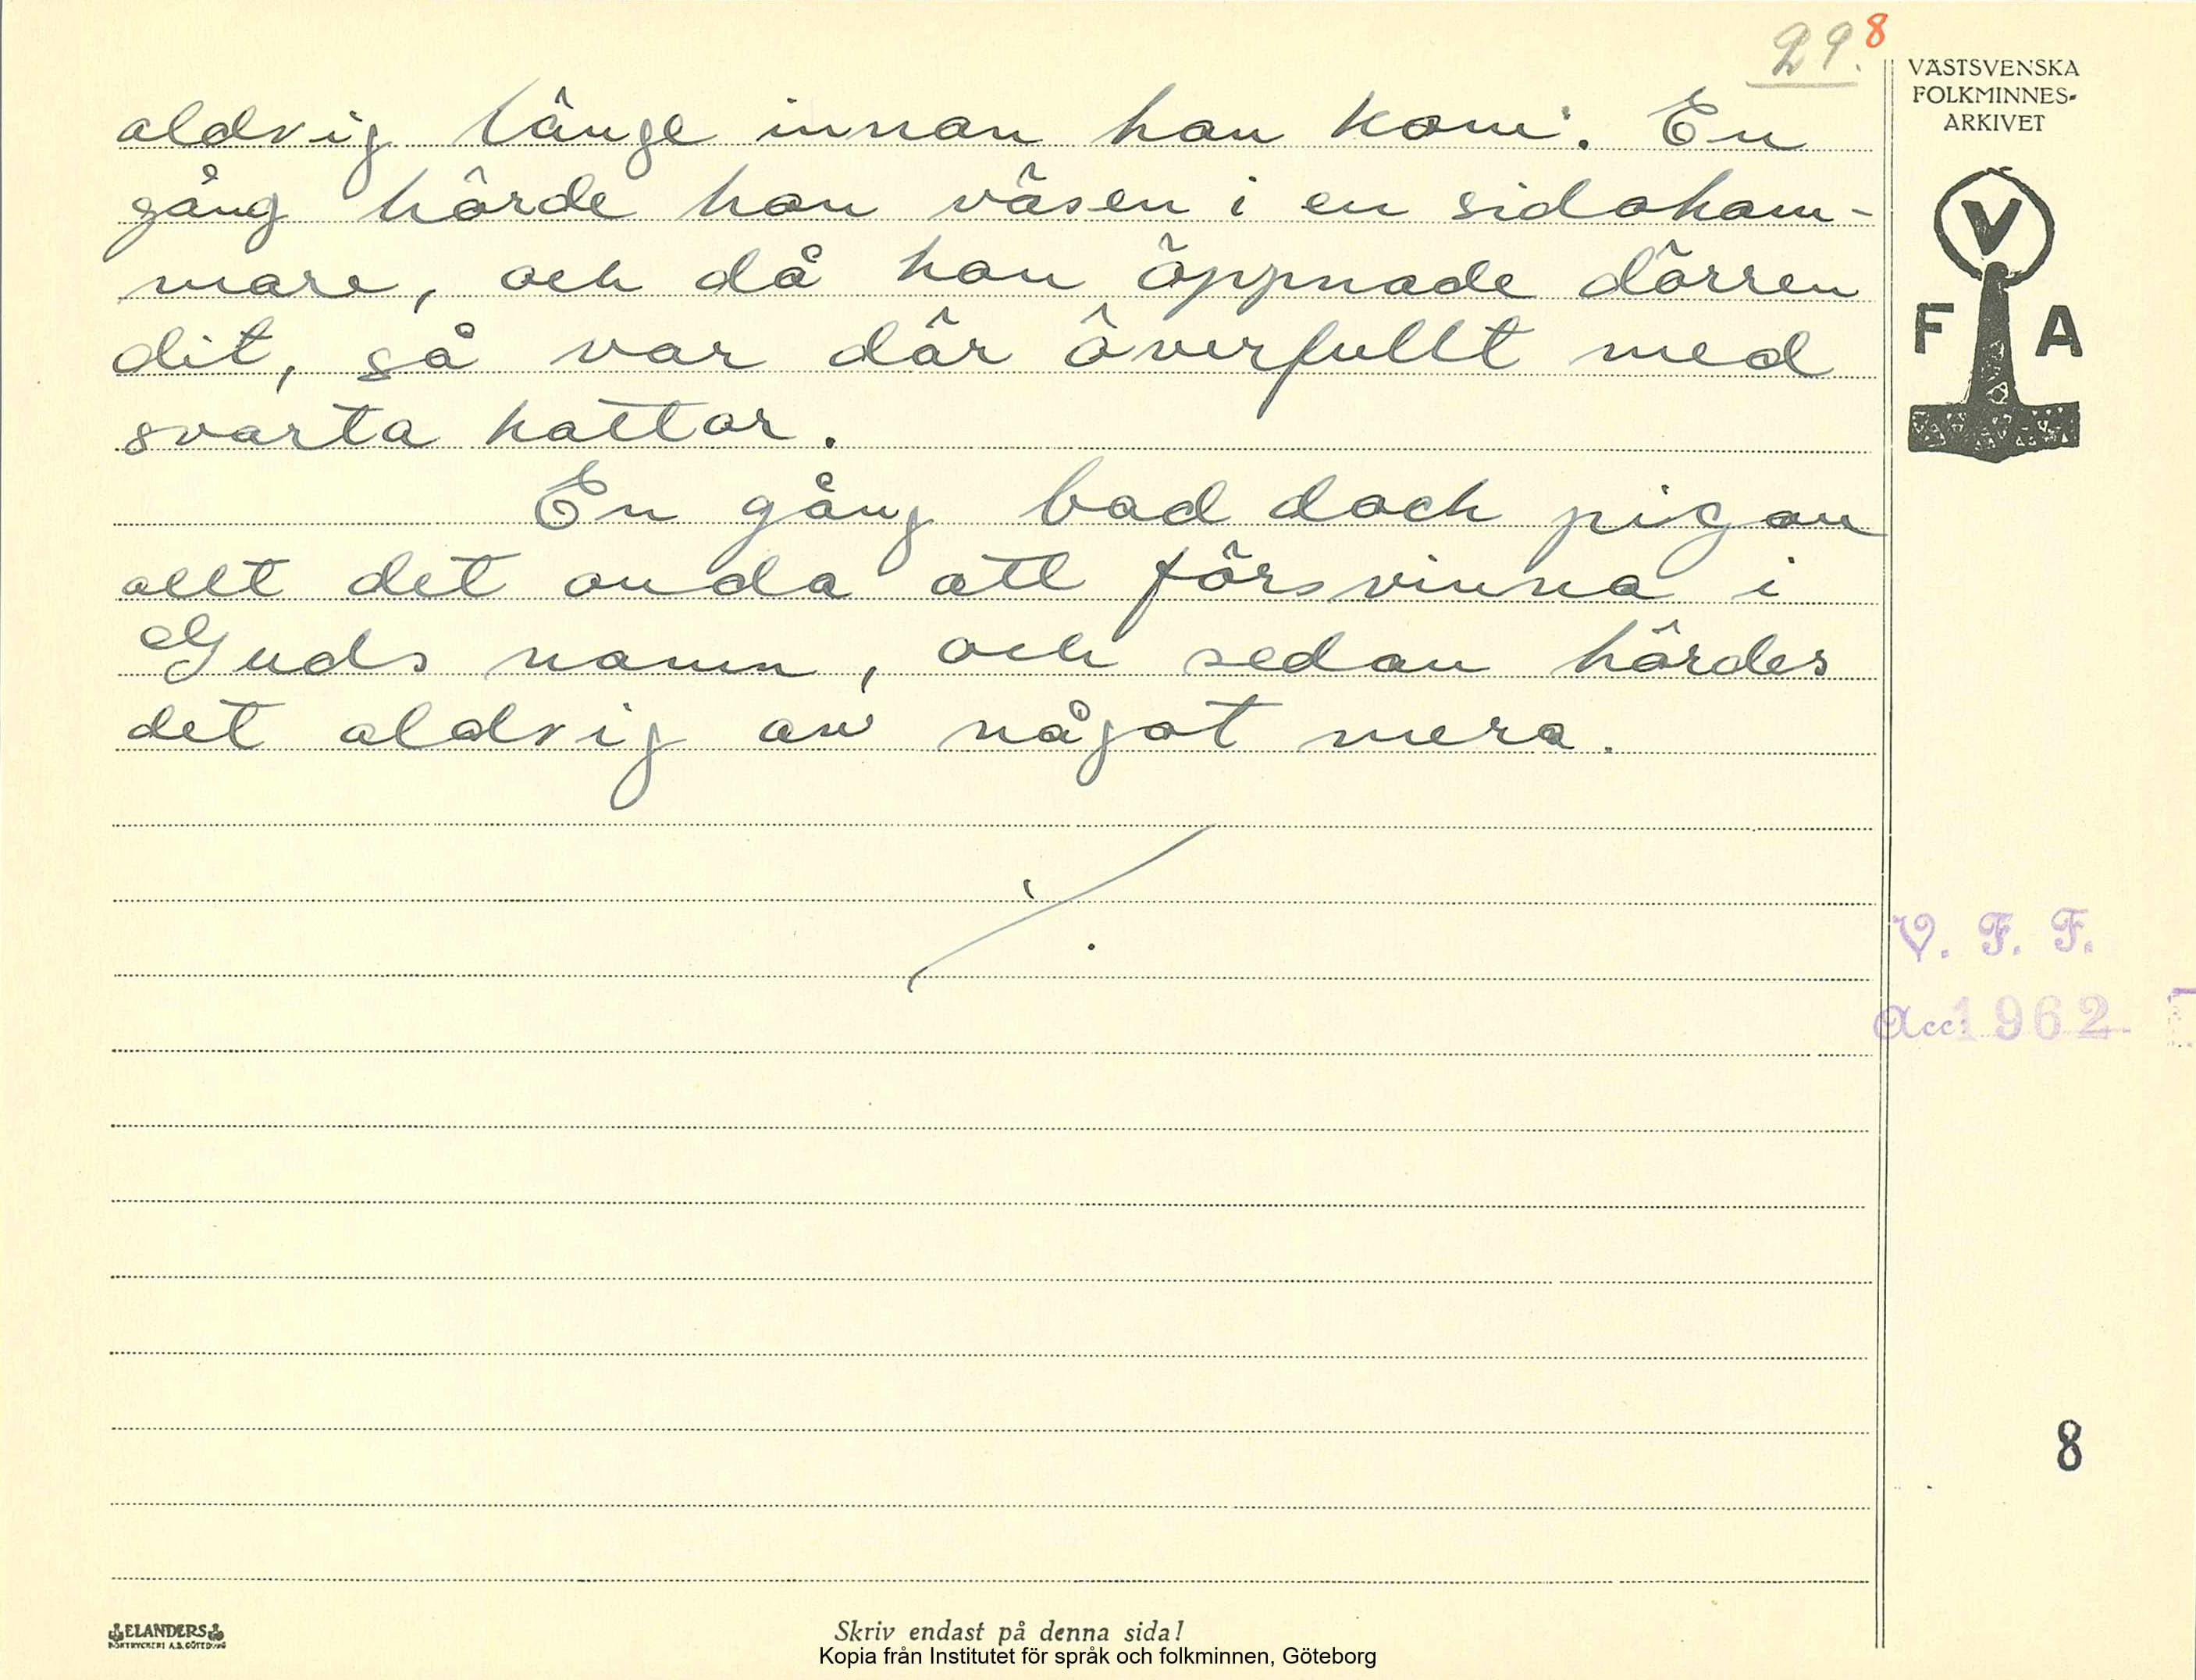 29. 8
VÄSTSVENSKA
FOLKMINNES-
ARKIVET
V
F A
aldrig länge innan han kom. En
gång hörde han väsen i en sidokam-
mare, och då han öppnade dörren
dit, så var där överfullt med
svarta kattor.
En gång bad dock pigan
allt det onda att försvinna i
Guds namn, och sedan hördes
det aldrig av något mera.
V. F. F.
Acc. 1962
8
ELANDERS
BOKTRYCKERI A.B. GÖTEBORG
Skriv endast på denna sida!
Kopia från Institutet för språk och folkminnen, Göteborg